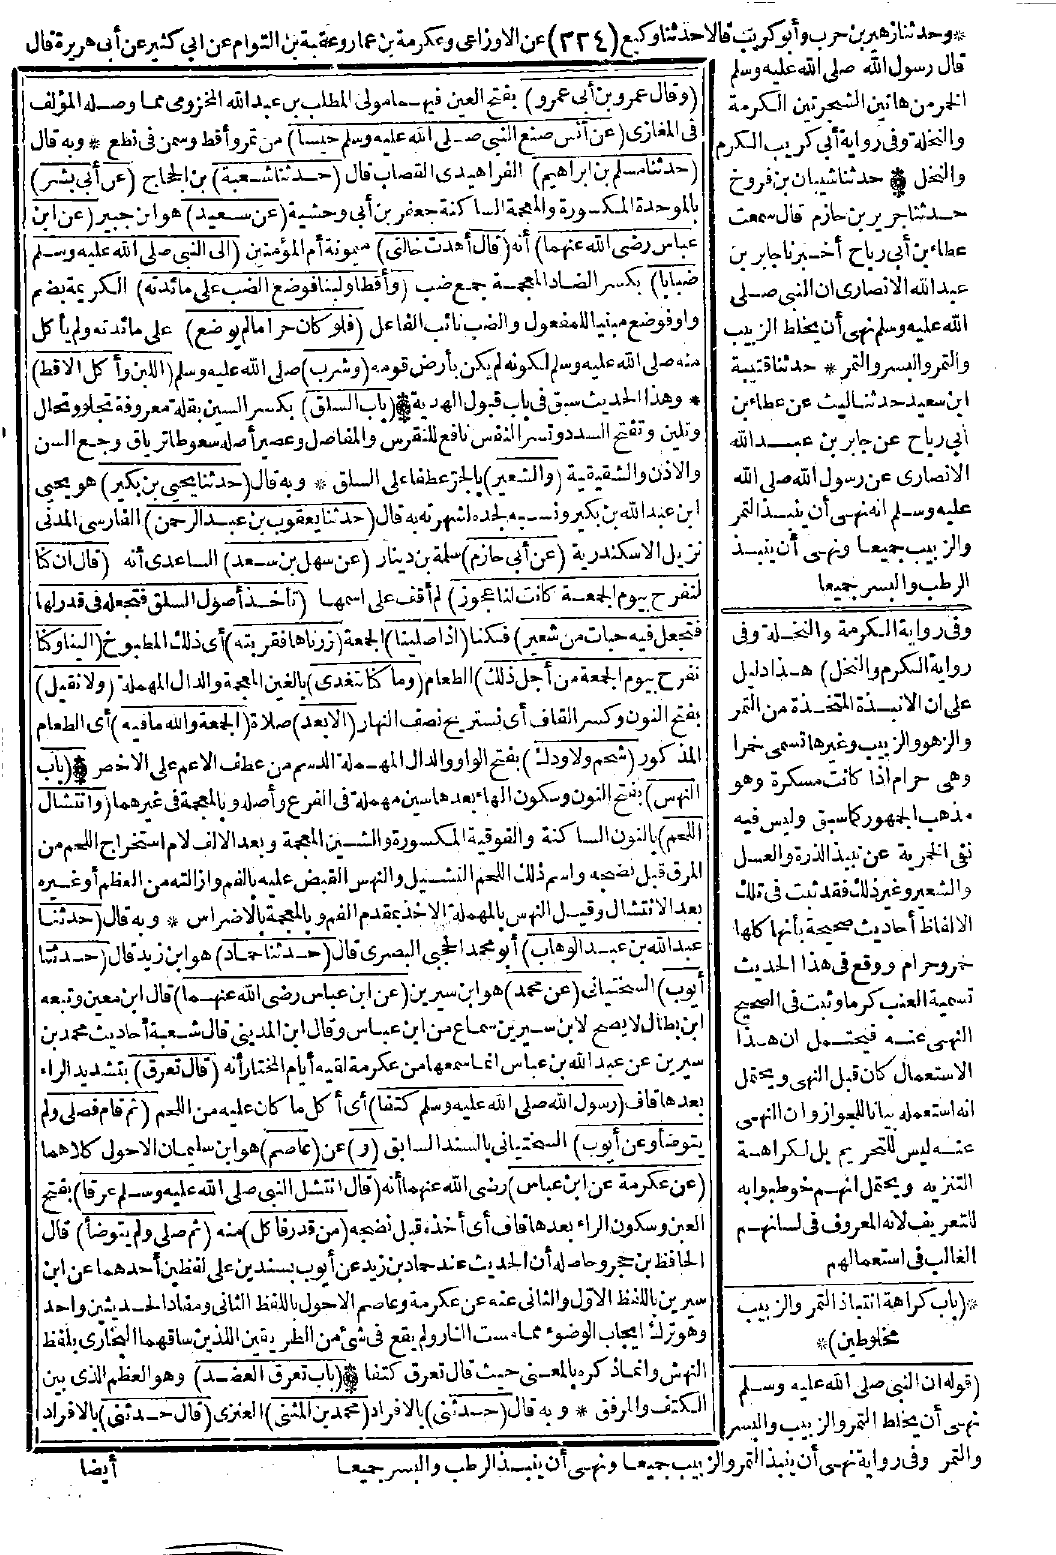 *وحدثنا زهير بن حرب وأبو كريب قالا حدثنا وكيع (٣٣٤) عن الاوزاعى وعكرمة بن عمار وعقبة بن التوأم عن ابى كثير عن أبى هريرة قال
قال رسول الله صلى الله عليه وسلم
الخمر من هاتين الشجرتين الكرمة
والنخلة وفى رواية أبى كريب الكرم
والنخل * حدثنا شيبان بن فروخ
حدثنا جرير بن حازم قال سمعت
عطاء بن أبى رباح أخبرنا جابر بن
عبد الله الانصارى ان النبى صلى
الله عليه وسلم نهى أن يخلط الزبيب
والتمر والبسر والتمر * حدثنا قتيبة
ابن سعيد حدثنا ليث عن عطاء بن
أبى رباح عن جابر بن عبد الله
الانصارى عن رسول الله صلى الله
عليه وسلم انه نهى أن ينبذ التمر
والزبيب جميعا ونهى أن ينبذ
الرطب والبسر جميعا
وفى رواية الكرمة والنخلة وفى
رواية الكرم والنخل) هذا دليل
على ان الانبذة المتخذة من التمر
والزهو والزبيب وغيرها تسمى خمرا
وهى حرام اذا كانت مسكرة وهو
مذهب الجمهور كما سبق وليس فيه
نفى الخمرية عن نبيذ الذرة والعسل
والشعير وغير ذلك فقد ثبت فى تلك
الالفاظ أحاديث صحيحة بأنها كلها
خمر وحرام ووقع فى هذا الحديث
تسمية العنب كرما وثبت فى الصحيح
النهى عنه فيحتمل ان هذا
الاستعمال كان قبل النهى ويحتمل
انه استعمله بيانا للجواز وان النهى
عنه ليس للتحريم بل لكراهة
التنزيه ويحتمل انهم خوطبوا به
للتعريف لانه المعروف فى لسانهم
الغالب فى استعمالهم
*(باب كراهة انتباذ التمر والزبيب
مخلوطين)*
(قوله ان النبى صلى الله عليه وسلم
نهى أن يخلط التمر والزبيب والبسر
والتمر وفى رواية نهى أن ينبذ التمر والزبيب جميعا ونهى أن ينبذ الرطب والبسر جميعا
أيضا
(وقال عمرو بن أبى عمرو) بفتح العين فيهما مولى المطلب بن عبد الله المخزومى مما وصله المؤلف
فى المغازى (عن أنس صنع النبى صلى الله عليه وسلم حيسا) من تمر وأقط وسمن فى نطع * وبه قال
(حدثنا مسلم بن ابراهيم) الفراهيدى القصاب قال (حدثنا شعبة) بن الحجاج (عن أبى بشر)
بالموحدة المكسورة والمعجمة الساكنة جعفر بن أبى وحشية (عن سعيد) هو ابن جبير (عن ابن
عباس رضى الله عنهما) أنه (قال أهدت خالتى) ميمونة أم المؤمنين (الى النبى صلى الله عليه وسلم
ضبابا) بكسر الضاد المعجمة جمع ضب (وأقطا ولبنا فوضع الضب على مائدته) الكريمة بضم
واو فوضع مبنيا للمفعول والضب نائب الفاعل (فلو كان حراما لم يوضع) على مائدته ولم يأكل
منه صلى الله عليه وسلم لكونه لم يكن بأرض قومه (وشرب) صلى الله عليه وسلم (اللبن وأكل الاقط)
* وهذا الحديث سبق فى باب قبول الهدية * (باب السلق) بكسر السين بقلة معروفة تجلو وتحلل
وتلين وتفتح السدد وتسر النفس نافع للنقرس والمفاصل وعصير أصله سعوطا ترياق وجع السن
والاذن والشقيقة (والشعير) بالجر عطفا على السلق * وبه قال (حدثنا يحيى بن بكير) هو يحيى
ابن عبد الله بن بكير ونسبه لجده لشهرته به قال (حدثنا يعقوب بن عبد الرحمن) الفارسى المدنى
نزيل الاسكندرية (عن أبى حازم) سلمة بن دينار (عن سهل بن سعد) الساعدى أنه (قال ان كنا
لنفرح بيوم الجمعة كانت لنا عجوز) لم أقف على اسمها (تأخذ أصول السلق فتجعله فى قدر لها
فتجعل فيه حبات من شعير) فكنا (اذا صلينا) الجمعة (زرناها فقربته) أى ذلك المطبوخ (الينا وكنا
نفرح بيوم الجمعة من أجل ذلك) الطعام (وما كنا نتغدى) بالغين المعجمة والدال المهملة (ولا نقيل)
بفتح النون وكسر القاف أى نستريح نصف النهار (الا بعد) صلاة (الجمعة والله ما فيه) أى الطعام
المذكور (شحم ولا ودك) بفتح الواو والدال المهملة الدسم من عطف الاعم على الاخص * (باب
النهس) بفتح النون وسكون الهاء بعدها سين مهملة فى الفرع وأصله وبالمعجمة فى غيرهما (وانتشال
اللحم) بالنون الساكنة والفوقية المكسورة والشين المعجمة وبعد الالف لام استخراج اللحم من
المرق قبل نضجه واسم ذلك اللحم النشيل والنهس القبض عليه بالفم وازالته من العظم أو غيره
بعد الانتشال وقيل النهس بالمهملة الاخذ بمقدم الفم وبالمعجمة بالاضراس * وبه قال (حدثنا
عبد الله بن عبد الوهاب) أبو محمد الحجبى البصرى قال (حدثنا حماد) هو ابن زيد قال (حدثنا
أيوب) السختيانى (عن محمد) هو ابن سيرين (عن ابن عباس رضى الله عنهما) قال ابن معين وتبعه
ابن بطال لا يصح لابن سيرين سماع من ابن عباس وقال ابن المدينى قال شعبة أحاديث محمد بن
سيرين عن عبد الله بن عباس انما سمعها من عكرمة لقيه أيام المختار أنه (قال تعرق) بتشديد الراء
بعدها قاف (رسول الله صلى الله عليه وسلم كتفا) أى أكل ما كان عليه من اللحم (ثم قام فصلى ولم
يتوضأ وعن أيوب) السختيانى بالسند السابق (و) عن (عاصم) هو ابن سليمان الاحول كلاهما
(عن عكرمة عن ابن عباس) رضى الله عنهما أنه (قال انتشل النبى صلى الله عليه وسلم عرقا) بفتح
العين وسكون الراء بعدها قاف أى أخذه قبل نضجه (من قدر فأكل) منه (ثم صلى ولم يتوضأ) قال
الحافظ بن حجر وحاصله أن الحديث عند حماد بن زيد عن أيوب بسندين على لفظين أحدهما عن ابن
سيرين باللفظ الاول والثانى عنه عن عكرمة وعاصم الاحول باللفظ الثانى ومفاد الحديثين واحد
وهو ترك ايجاب الوضوء مما مست النار ولم يقع فى شئ من الطريقين اللذين ساقهما البخارى بلفظ
النهس وانما ذكره بالمعنى حيث قال تعرق كتفا * (باب تعرق العضد) وهو العظم الذى بين
الكتف والمرفق * وبه قال (حدثنى) بالافراد (محمد بن المثنى) العنزى (قال حدثنى) بالافراد